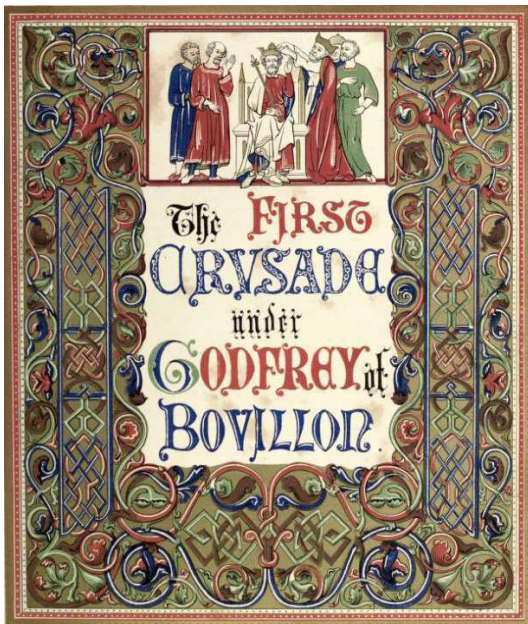 The FIRST
CRVSADE
under
GODFREY of
BOVILLON.